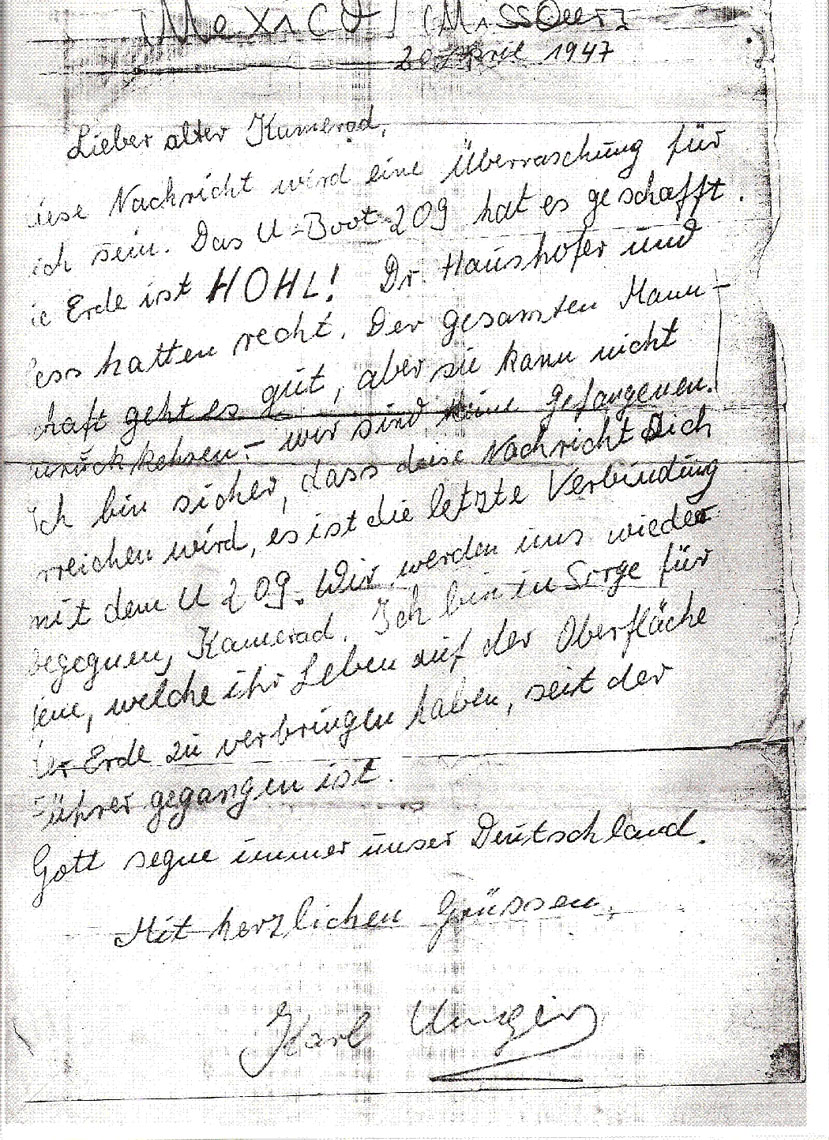 Mexico / (Missouri)
20 April 1947
Lieber alter Kamerad,
iese Nachricht wird eine Überraschung für
ich sein. Das U-Boot 209 hat es geschafft.
ie Erde ist HOHL! Dr. Haushofer und
ess hatten recht. Der gesamten Mann-
chaft geht es gut, aber sie kann nicht
urückkehren - wir sind keine Gefangenen.
Ich bin sicher, dass diese Nachricht Dich
rreichen wird, es ist die letzte Verbindung
mit dem U 209. Wir werden uns wieder
begegnen, Kamerad. Ich bin in Sorge für
jene, welche ihr Leben auf der Oberfläche
der Erde zu verbringen haben, seit der
Führer gegangen ist.
Gott segne immer unser Deutschland.
Mit herzlichen Grüssen,
Karl Unger